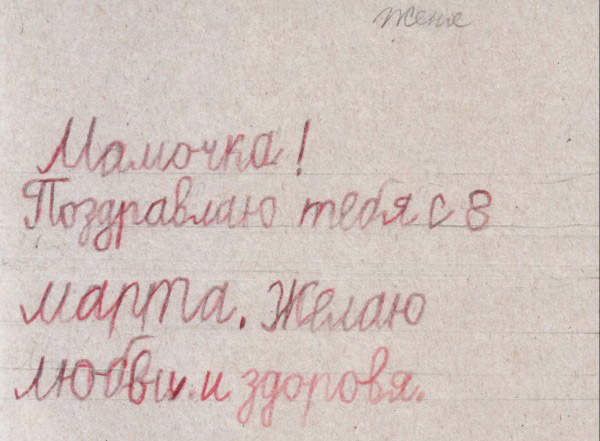 Женя
Мамочка!
Поздравлаю тебя с 8
марта. Желаю
любви. и здоровя.